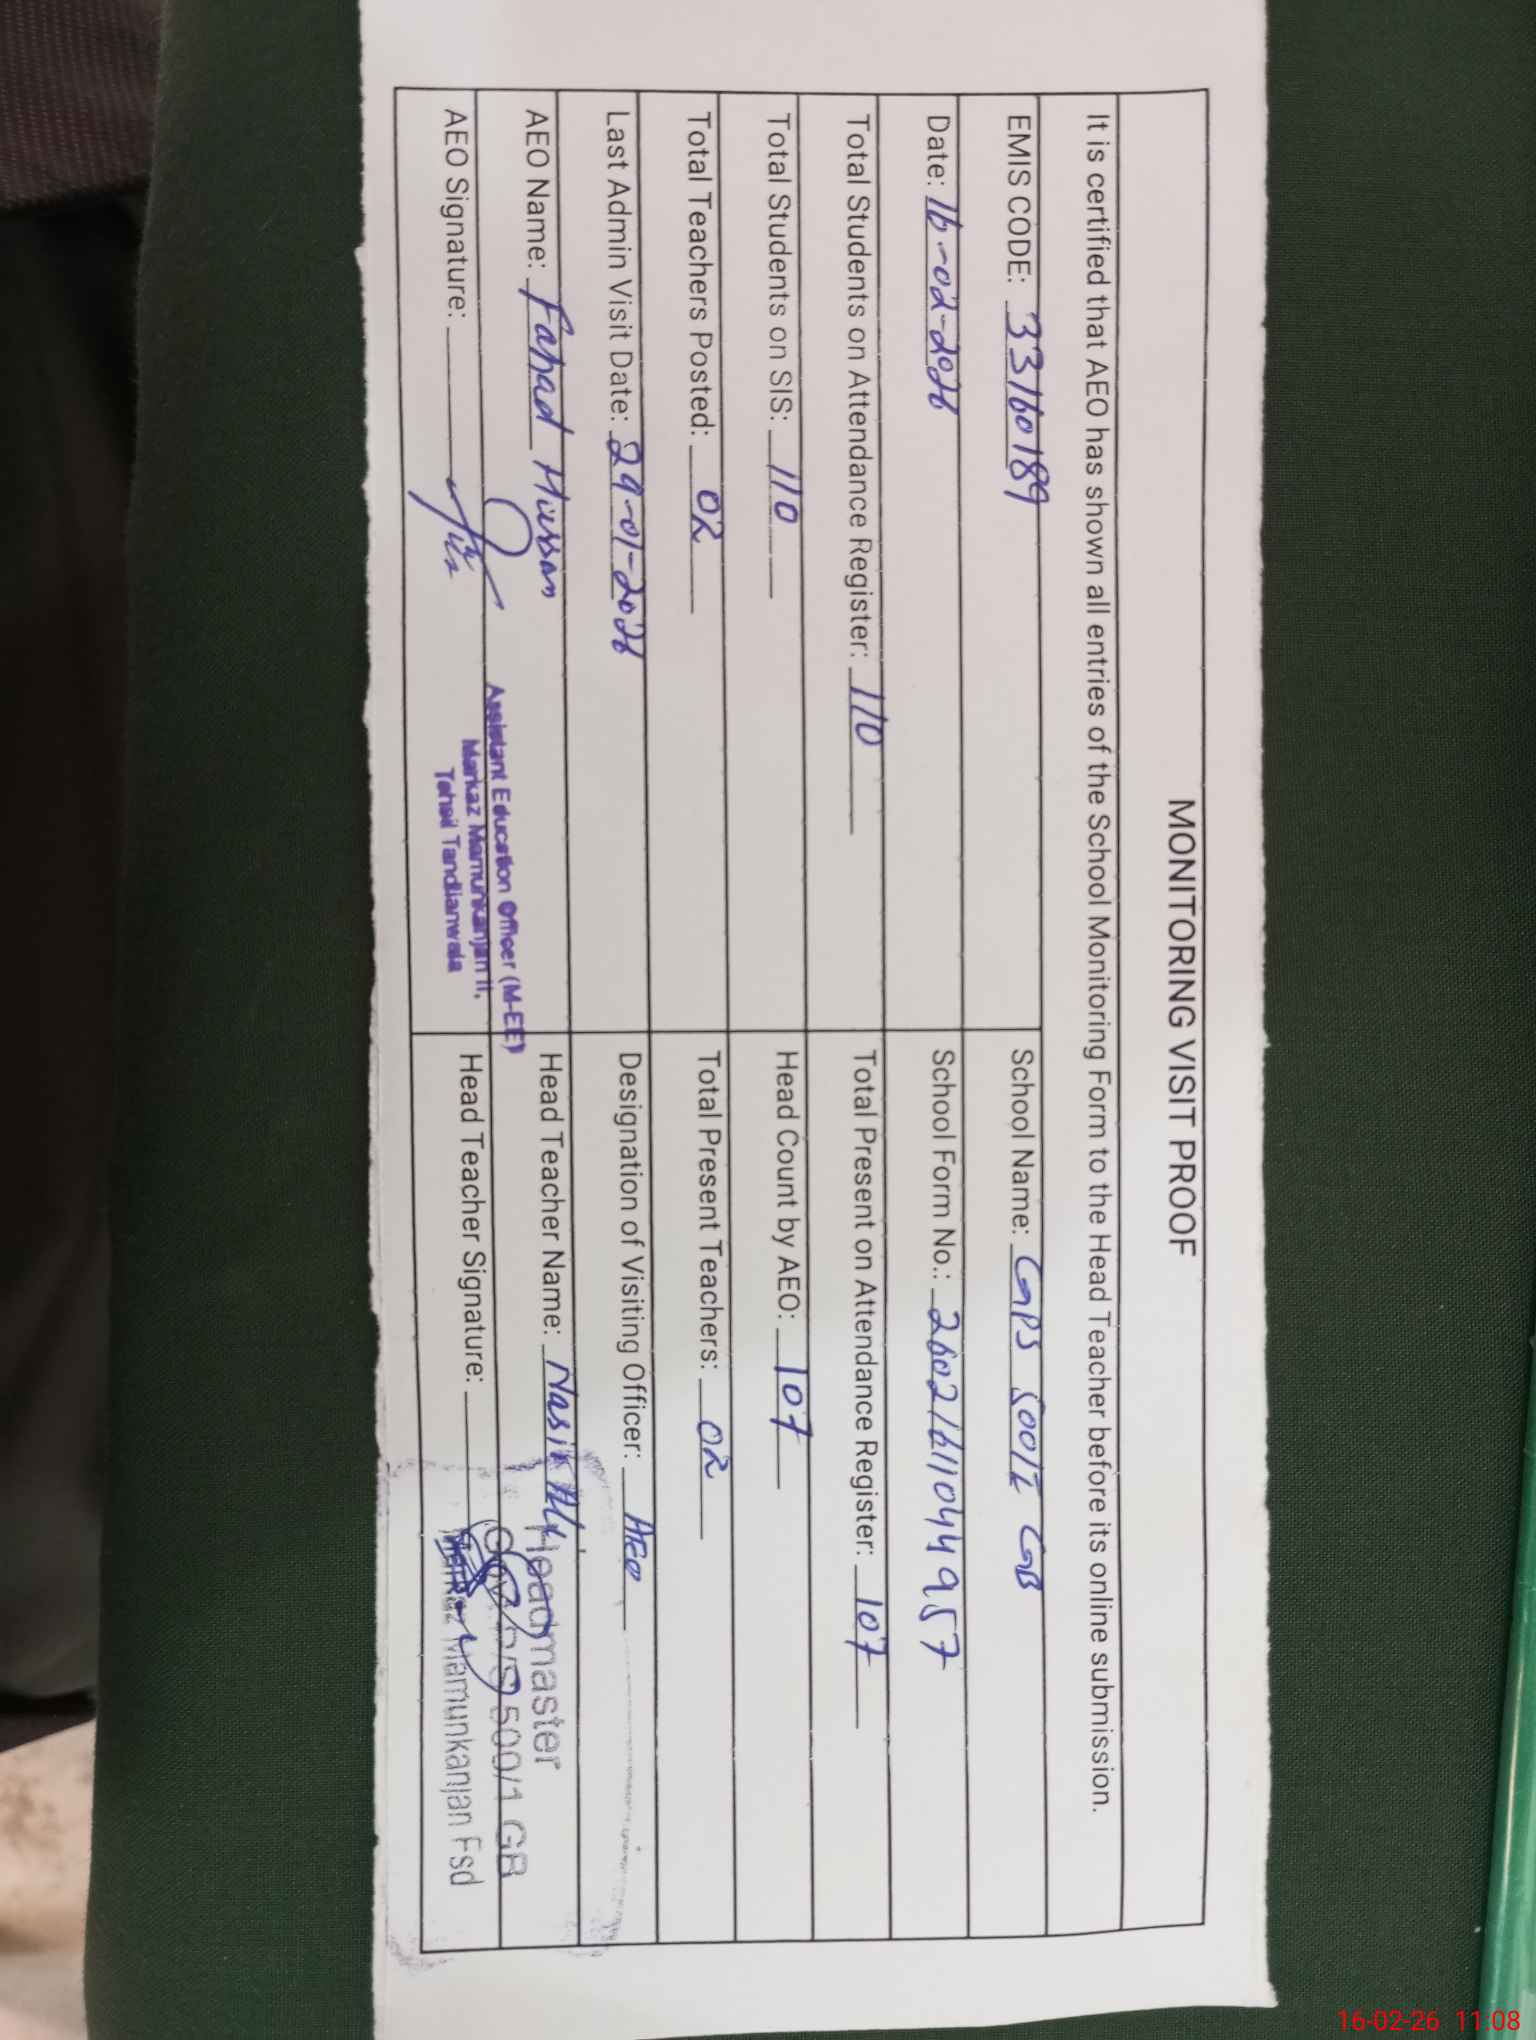 MONITORING VISIT PROOF
It is certified that AEO has shown all entries of the School Monitoring Form to the Head Teacher before its online submission.
EMIS CODE: 33160189 School Name: GPS 500/I GB
Date: 16-02-2026 School Form No.: 26021611044957
Total Students on Attendance Register: 110 Total Present on Attendance Register: 107
Total Students on SIS: 110 Head Count by AEO: 107
Total Teachers Posted: 02 Total Present Teachers: 02
Last Admin Visit Date: 29-01-2026 Designation of Visiting Officer: AEO
AEO Name: Fahad Hassan Head Teacher Name: Nasir Ali
AEO Signature: Head Teacher Signature:
Assistant Education Officer (M-EE)
Markaz Mamunkanjan II,
Tehsil Tandlianwala
Headmaster
Govt P/S 500/1 GB
Markaz Mamunkanjan Fsd
16-02-26 11:08